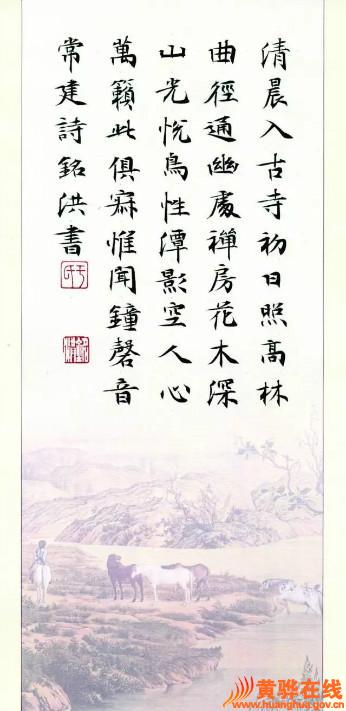 清晨入古寺初日照髙林
曲徑通幽處禪房花木深
山光悅鳥性潭影空人心
萬籟此俱寂惟聞鐘磬音
常建詩銘洪書
黄骅在线
www.huanghua.gov.cn